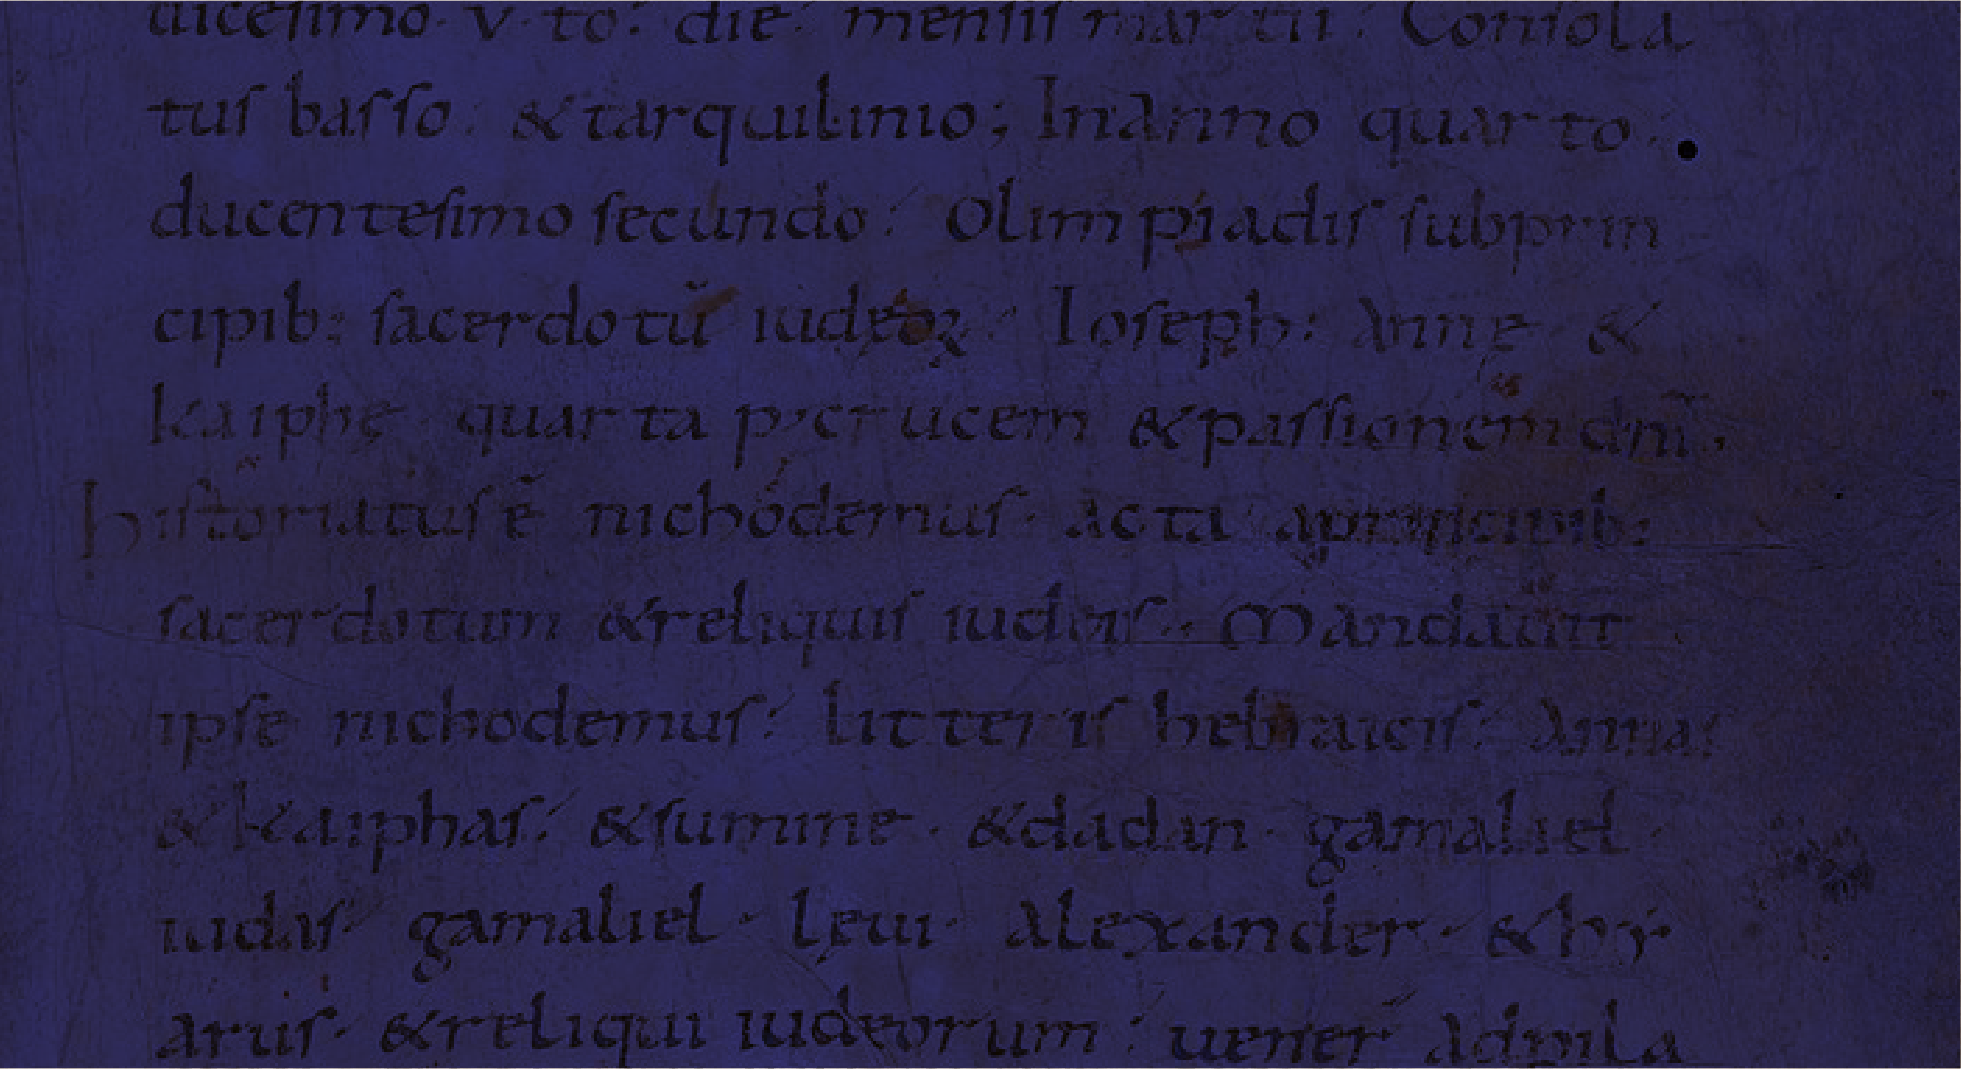 uicesimo· v·to: die· mensis martii: Consola
tus basso: & tarquilinio; In anno quarto·
ducentesimo secundo: Olimpiadis sub prin
cipib: sacerdotũ iudeoꝝ· Ioseph: Anne &
kaiphę· quarta p' crucem & passionem dnĩ·
historiatus ẽ nichodemus· Acta a principib:
sacerdotum & reliquis iudeis·· Mandauit
ipse nichodemus: litteris hebraicis: Annas
& kaiphas: & summe· & dadan· gamaliel·
iudas· gamaliel· leui· Alexander· & hy
arus· & reliqui iudeorum: uener Ad pila